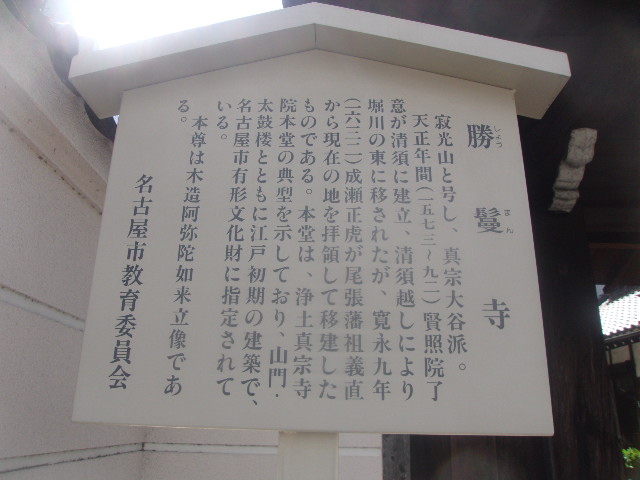 勝鬘寺
しょう
まん
寂光山と号し、真宗大谷派。
天正年間(一五七三〜九二)賢照院了
意が清須に建立、清須越しにより
堀川の東に移されたが、寛永九年
(一六三二)成瀬正虎が尾張藩祖義直
から現在の地を拝領して移建した
ものである。本堂は、浄土真宗寺
院本堂の典型を示しており、山門・
太鼓楼とともに江戸初期の建築で、
名古屋市有形文化財に指定されて
いる。
本尊は木造阿弥陀如来立像であ
る。
名古屋市教育委員会